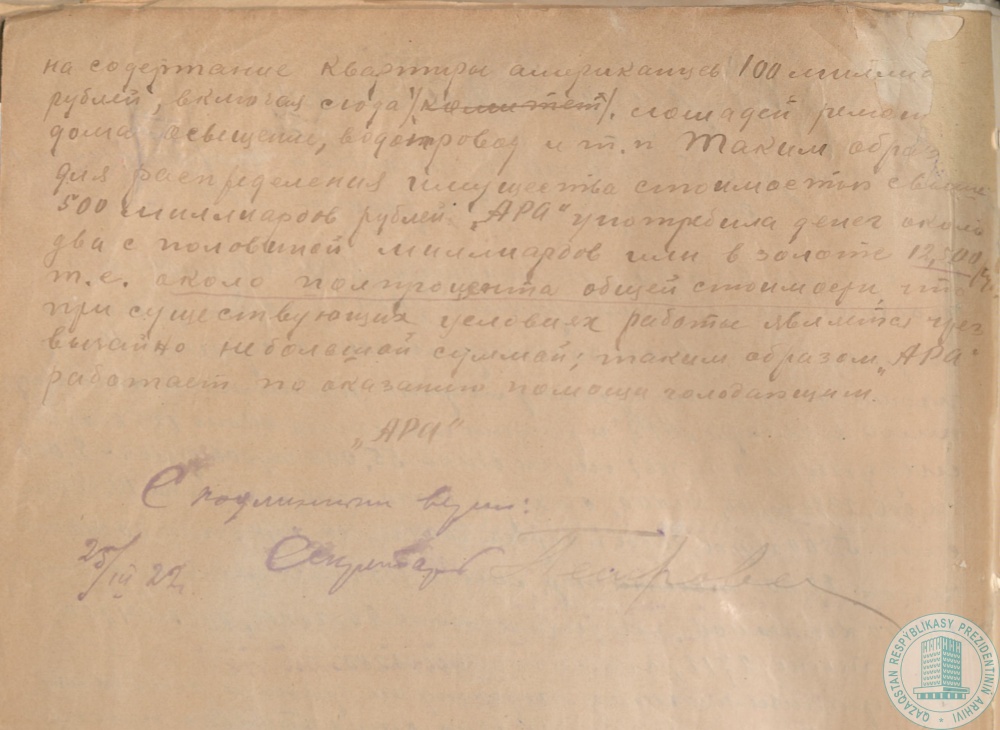 на содержание квартиры американцев 100 миллио
рублей, включая сюда /комитет/. лошадей ремонт
дома освещение, водопровод и т.п Таким образ
для распределения имущества стоимостью свыше
500 миллиардов рублей. „АРА" употребила денег около
два с половиной миллиардов или в золоте 12,500 р.
т.е. около полпроцента общей стоимости, что
при существующих условиях работы является чрез
вычайно небольшой суммой; таким образом „АРА"
работает по оказанию помощи голодающим.
„АРА"
С подлинным верно:
25/III 22 Секретарь
QAZAQSTAN RESPÝBLIKASY PREZIDENTINIŃ ARHIVI